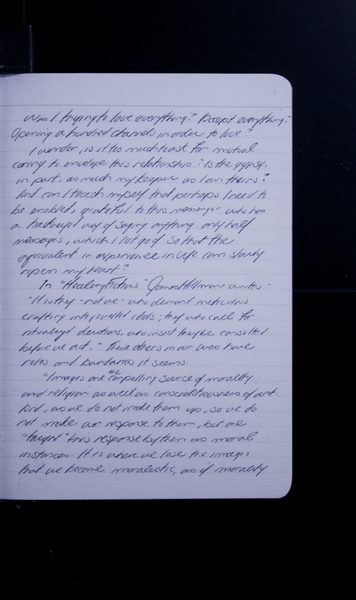 Was I trying to love everything? Accept everything?
Opening a hundred channels in order to love?
I wonder, is it too much to ask for mutual
caring to envelope this relationship? Is the gypsy,
in part, as much my keeper as I am theirs?
And can I teach myself that perhaps I need to
be enabled, grateful to this messenger who has
a backward way of saying anything. only half
messages, which I let go of so that the
equivalent in experience in life can slowly
ripen my heart?
In "Healing Fictions" James Hillman writes -
"It is they - not we - who demand meticulous
crafting into jeweled idols; they who call for
ritualized devotions, who insist they be consulted
before we act." These others in our lives have
roles and boundaries it seems.
"Images are the compelling source of morality
and religion as well as conscientiousness of art.
And, as we do not make them up, so we do
not make our response to them, but are
"taught" this response by them as moral
instances. It is when we lose the images
that we become moralistic, as if morality